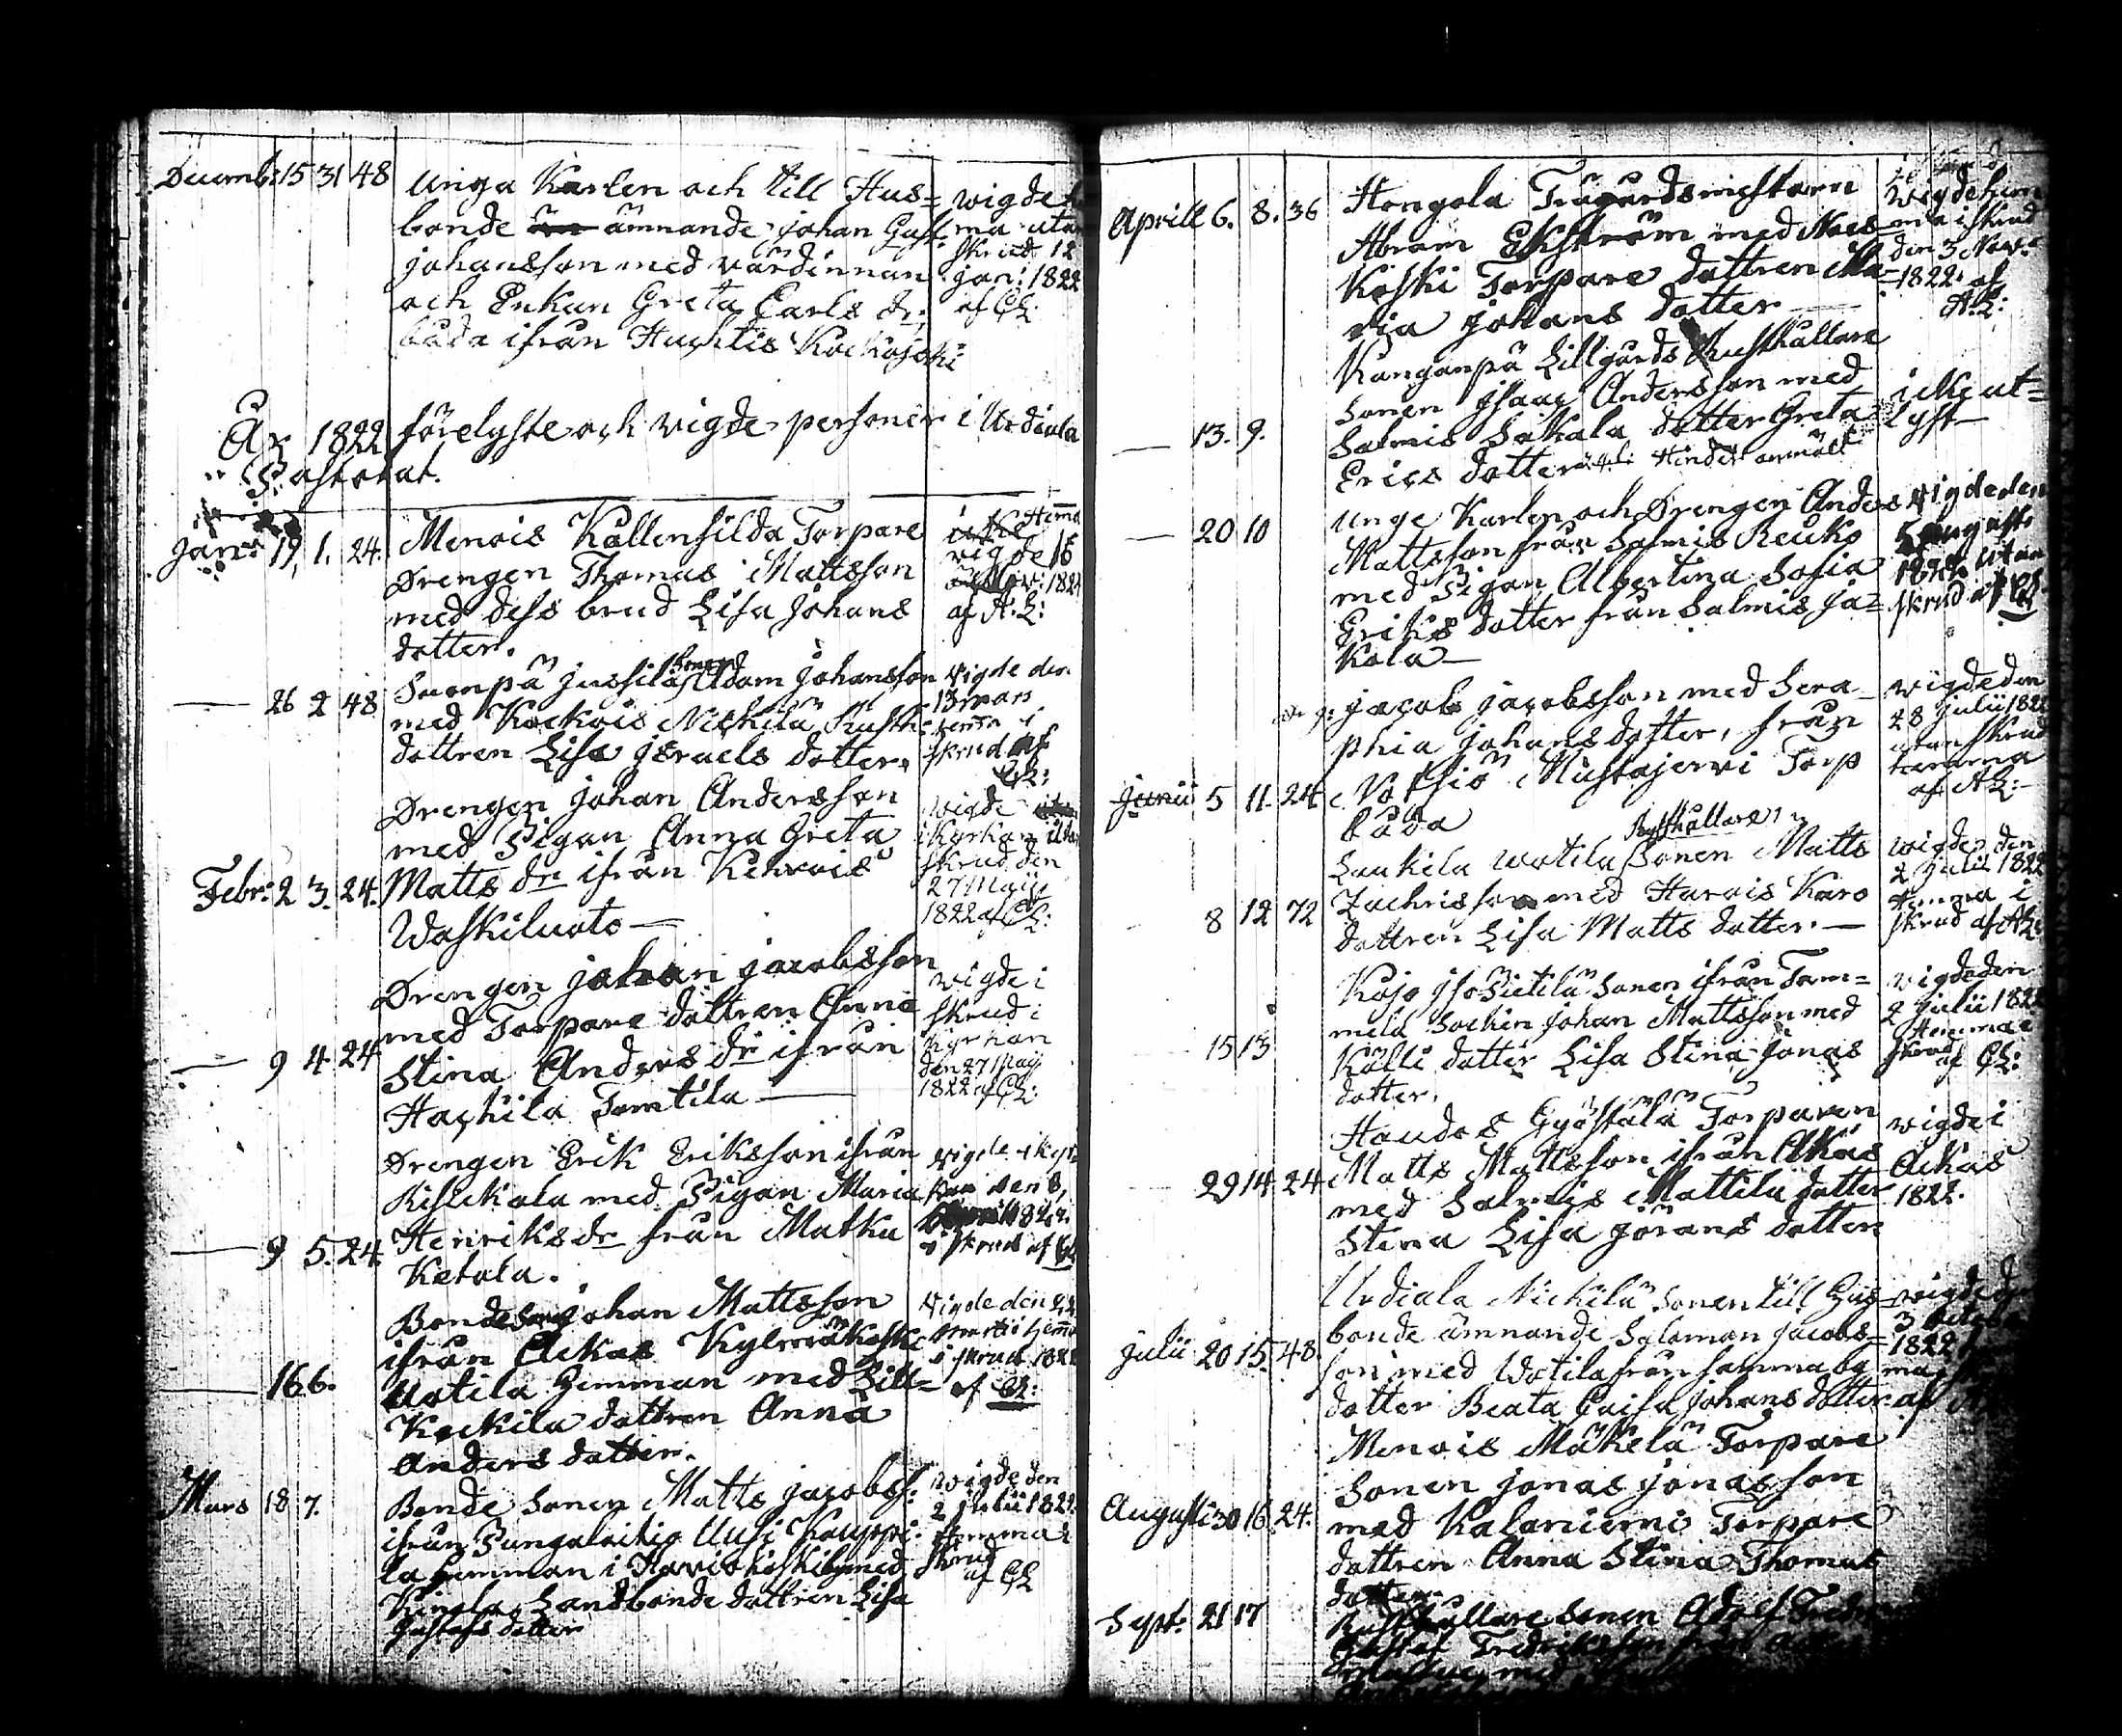 Decemb: 15 31 48 Unga Karlen och till Hus= wigde
bonde ämnande Johan Gust: ma utan
Johansson med värdinnan skrud 12
och Enkan Greta Carls dr: Jan: 1822
båda ifrån Huhtis Kockojoki af CL:
År 1822 förelyste och vigde personer i Urdiala
Pastorat.
Jan: 19. 1. 24. Menois Kallensilda Torpare
Drengen Thomas Mattsson vigde 16
med dess brud Lisa Johans Nov: 1822
dotter. af A. L:
26 2 48 Suonpä Jussila Sonen Adam Johansson vigde den
med Kockois Nickilä Rusth: 13 mars
dottren Lisa Israels dotter. skrud af
CL:
Drengen Johan Andersson wigde
med Pigan Anna Greta i Kyrkan utan
Febr: 2 3. 24. Matts dr ifrån Kehrois skrud den
Waskiluoto — 27 Maij
1822 af CL:
Drengen Johan Jacobsson vigde i
med Torpare dottren Anna skrud i
9 4. 24 Stina Anders dr ifrån kyrkan
Hachila Tomtila — den 27 Maij
1822 af CL:
Drengen Erik Eriksson ifrån vigde i kyr=
med Pigan Maria kan den 8,
9 5. 24. Henriks dr från Matku
Ketola. i skrud af CL
Bonde sonen Johan Mattsson vigde den 22
ifrån Ackas Kylmäkoski Martii hemma
16 6. Uotila Hemman med Lill= i skrud 1822
Kockila dottren Anna af CL:
Anders dotter.
Mars 18 7. Bonde Sonen Matts Jacobss: wigde den
ifrån Pungalaitio Uusi Kauppi= 2 Julii 1822.
la hemman i med Hemma i
Landbonde dottren Lisa skrud
Gustafs dotter af CL
Aprill 6. 8. 36 Hongola Trägårdsmästaren wigde hem
Abram Ekström med Nues= ma i skrud
Koski Torpare dottren Ma= den 3 Nov:
ria Johans dotter — 1822. af
A. L:
Kanganpä Lillgårds Rusthållare
13. 9. Sonen Isaac Andersson med icke ut=
Salmis Sakala dotter Greta lyst —
Erics dotter Hinder anmält
20 10 Unge Karlen och Drengen Anders vigde den
Mattsson från Salmis Reuko 5 Augusti
med Pigan Albertina Sofia 1822 utan
Eriks dotter från Salmis Ja= skrud af CL
kola —
Jacob Jacobsson med Sera= vigde den
phia Johans dotter, från 28 Julii 1822
Junii 5 11. 24 Notsiö Mustajervi Torp utan skrud
båda hemma
af A L:
Laukila Uotila Rusthållare Sonen Matts wigde den
8 12 72 Zachrisson med Harvis Karo 2 Julii 1822
dottren Lisa Matts dotter. — Hemma i
skrud af A L:
Kojo Iso Pietilä Sonen ifrån Tam= vigde den
mela Sochen Johan Mattsson med 2 Julii 1822
15 13 Källi dotter Lisa Stina Jonas Hemma i
dotter. skrud af CL:
Haudes Gyöstälä Torparen wigde i
29 14. 24 Matts Mattsson ifrån Ackas Ackas
med Salmis Mattila dotter 1822.
Stina Lisa Görans dotter
Urdiala Nickilä Sonen till Hus= wigde de
Julii 20 15. 48. bonde ämnande Salomon Jacobs= 3
son med Uotila från samma by 1822
dotter Beata Caisa Johans dotter. af
Menois Mäkelä Torpare
Sonen Jonas Jonasson
Augusti 30 16. 24. med Kalaniemi Torpare
dottren Anna Stina Thomas
dotter.
Sept: 21 17 Rusthållare sonen Adolf